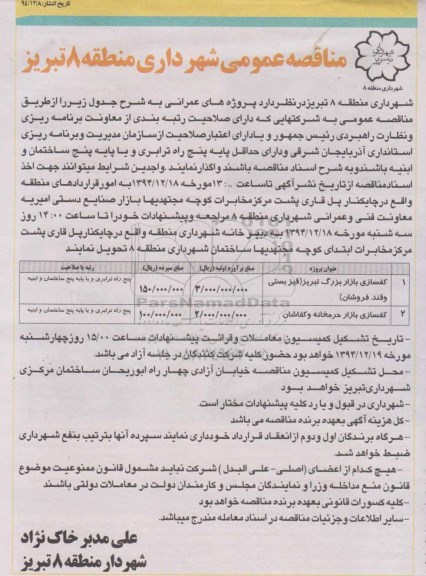 تاریخ انتشار: ۹۴/۱۲/۸
مناقصه عمومی شهرداری منطقه ۸ تبریز
شهرداری منطقه ۸
شهرداری منطقه ۸ تبریز درنظر دارد پروژه های عمرانی به شرح جدول زیر را از طریق
مناقصه عمومی به شرکتهایی که دارای صلاحیت رتبه بندی از معاونت برنامه ریزی
و نظارت راهبردی رئیس جمهور و یا دارای اعتبار صلاحیت از سازمان مدیریت و برنامه ریزی
استانداری آذربایجان شرقی و دارای حداقل پایه پنج راه ترابری و یا پایه پنج ساختمان و
ابنیه باشند و به شرح اسناد مناقصه باشند واگذار نمایند. واجدین شرایط میتوانند جهت اخذ
اسناد مناقصه از تاریخ نشر آگهی تا ساعت ۱۳:۰۰ مورخه ۱۳۹۴/۱۲/۱۸ به امور قراردادهای منطقه
واقع در چایکنار پل قاری پشت مرکز مخابرات کوچه مجتهدیها بازار صنایع دستی امیریه
معاونت فنی و عمرانی شهرداری منطقه ۸ مراجعه و پیشنهادات خود را تا ساعت ۱۴:۰۰ روز
سه شنبه مورخه ۱۳۹۴/۱۲/۱۸ به دبیرخانه شهرداری منطقه واقع در چایکنار پل قاری پشت
مرکز مخابرات ابتدای کوچه مجتهدیها ساختمان شهرداری منطقه ۸ تحویل نمایند
عنوان پروژه مبلغ برآورد اولیه (ریال) مبلغ سپرده (ریال) رتبه یا صلاحیت
۱ کفسازی بازار بزرگ تبریز (قیز بستی وقند فروشان) ۳/۰۰۰/۰۰۰/۰۰۰ ۱۵۰/۰۰۰/۰۰۰ پنج راه ترابری و یا پایه پنج ساختمان و ابنیه
۲ کفسازی بازار حرمخانه و کفاشان ۲/۰۰۰/۰۰۰/۰۰۰ ۱۰۰/۰۰۰/۰۰۰ پنج راه ترابری و یا پایه پنج ساختمان و ابنیه
ParsNamadData
- تاریخ تشکیل کمیسیون معاملات و قرائت پیشنهادات ساعت ۱۵/۰۰ روز چهارشنبه
مورخه ۱۳۹۴/۱۲/۱۹ خواهد بود حضور کلیه شرکت کنندگان در جلسه آزاد می باشد.
- محل تشکیل کمیسیون مناقصه خیابان آزادی چهار راه ابوریحان ساختمان مرکزی
شهرداری تبریز خواهد بود
- شهرداری در قبول و یا رد کلیه پیشنهادات مختار است.
- کل هزینه آگهی بعهده برنده مناقصه می باشد
- هرگاه برندگان اول و دوم از انعقاد قرارداد خودداری نمایند سپرده آنها بترتیب بنفع شهرداری
ضبط خواهد شد.
- هیچ کدام از اعضای (اصلی - علی البدل) شرکت نباید مشمول قانون ممنوعیت موضوع
قانون منع مداخله وزرا و نمایندگان مجلس و کارمندان دولت در معاملات دولتی باشند
- کلیه کسورات قانونی بعهده برنده مناقصه خواهد بود
- سایر اطلاعات و جزئیات مناقصه در اسناد معامله مندرج میباشد.
علی مدبر خاک نژاد
شهردار منطقه ۸ تبریز